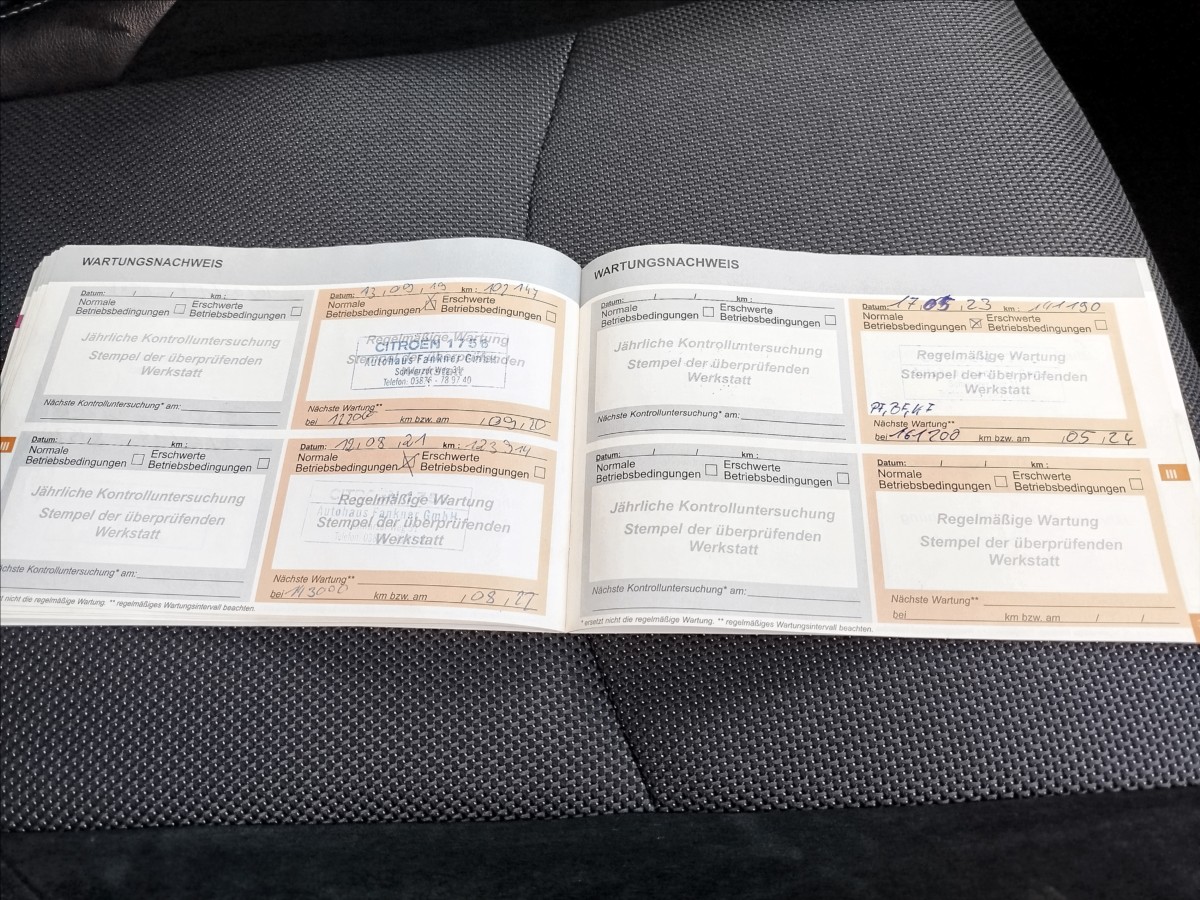 WARTUNGSNACHWEIS
Datum: / / km:
Normale Betriebsbedingungen
Erschwerte Betriebsbedingungen
Jährliche Kontrolluntersuchung
Stempel der überprüfenden
Werkstatt
Nächste Kontrolluntersuchung* am:
Datum: 13, 09, 19 km: 101 147
Normale Betriebsbedingungen
Erschwerte Betriebsbedingungen
Regelmäßige Wartung
Stempel der überprüfenden
Werkstatt
CITROËN 1756
Autohaus Fankner GmbH
Telefon: 03876 - 78 97 40
Nächste Wartung**
bei km bzw. am , 09, 20
Datum: / / km:
Normale Betriebsbedingungen
Erschwerte Betriebsbedingungen
Jährliche Kontrolluntersuchung
Stempel der überprüfenden
Werkstatt
Nächste Kontrolluntersuchung* am:
Datum: 12, 08, 21 km: 123 314
Normale Betriebsbedingungen
Erschwerte Betriebsbedingungen
Regelmäßige Wartung
Stempel der überprüfenden
Werkstatt
Autohaus Fankner GmbH
Nächste Wartung**
bei 143000 km bzw. am , 08, 22
III
* ersetzt nicht die regelmäßige Wartung. ** regelmäßiges Wartungsintervall beachten.
WARTUNGSNACHWEIS
Datum: / / km:
Normale Betriebsbedingungen
Erschwerte Betriebsbedingungen
Jährliche Kontrolluntersuchung
Stempel der überprüfenden
Werkstatt
Nächste Kontrolluntersuchung* am:
Datum: 17, 05, 23 km: 141 190
Normale Betriebsbedingungen
Erschwerte Betriebsbedingungen
Regelmäßige Wartung
Stempel der überprüfenden
Werkstatt
Nächste Wartung**
bei 161200 km bzw. am , 05, 24
Datum: / / km:
Normale Betriebsbedingungen
Erschwerte Betriebsbedingungen
Jährliche Kontrolluntersuchung
Stempel der überprüfenden
Werkstatt
Nächste Kontrolluntersuchung* am:
Datum: / / km:
Normale Betriebsbedingungen
Erschwerte Betriebsbedingungen
Regelmäßige Wartung
Stempel der überprüfenden
Werkstatt
Nächste Wartung**
bei km bzw. am / /
III
* ersetzt nicht die regelmäßige Wartung. ** regelmäßiges Wartungsintervall beachten.